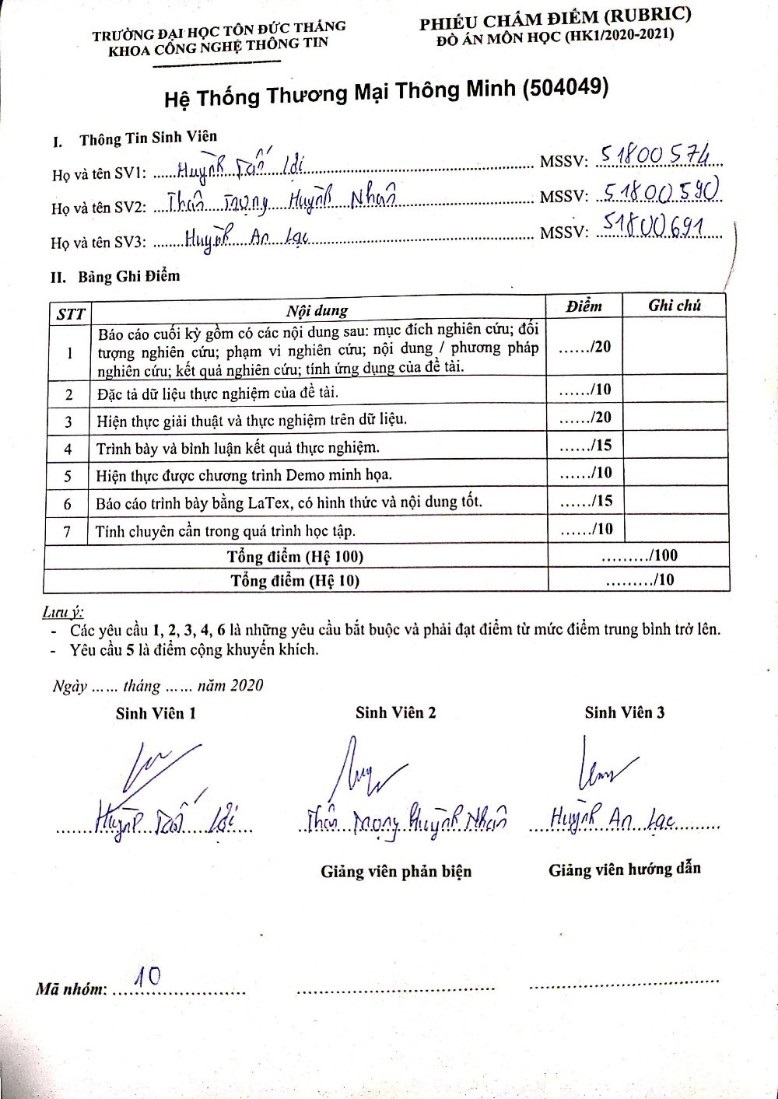 TRƯỜNG ĐẠI HỌC TÔN ĐỨC THẮNG
KHOA CÔNG NGHỆ THÔNG TIN
PHIẾU CHẤM ĐIỂM (RUBRIC)
ĐỒ ÁN MÔN HỌC (HK1/2020-2021)
Hệ Thống Thương Mại Thông Minh (504049)
I. Thông Tin Sinh Viên
Họ và tên SV1: Huỳnh Tấn Lợi MSSV: 51800574
Họ và tên SV2: Thân Trọng Huỳnh Nhân MSSV: 51800590
Họ và tên SV3: Huỳnh An Lạc MSSV: 51800691
II. Bảng Ghi Điểm
STT Nội dung Điểm Ghi chú
1 Báo cáo cuối kỳ gồm có các nội dung sau: mục đích nghiên cứu; đối
tượng nghiên cứu; phạm vi nghiên cứu; nội dung / phương pháp
nghiên cứu; kết quả nghiên cứu; tính ứng dụng của đề tài. ....../20
2 Đặc tả dữ liệu thực nghiệm của đề tài. ....../10
3 Hiện thực giải thuật và thực nghiệm trên dữ liệu. ....../20
4 Trình bày và bình luận kết quả thực nghiệm. ....../15
5 Hiện thực được chương trình Demo minh họa. ....../10
6 Báo cáo trình bày bằng LaTex, có hình thức và nội dung tốt. ....../15
7 Tính chuyên cần trong quá trình học tập. ....../10
Tổng điểm (Hệ 100) ........./100
Tổng điểm (Hệ 10) ........./10
Lưu ý:
- Các yêu cầu 1, 2, 3, 4, 6 là những yêu cầu bắt buộc và phải đạt điểm từ mức điểm trung bình trở lên.
- Yêu cầu 5 là điểm cộng khuyến khích.
Ngày ...... tháng ...... năm 2020
Sinh Viên 1 Sinh Viên 2 Sinh Viên 3
Huỳnh Tấn Lợi Thân Trọng Huỳnh Nhân Huỳnh An Lạc
Giảng viên phản biện Giảng viên hướng dẫn
Mã nhóm: 10